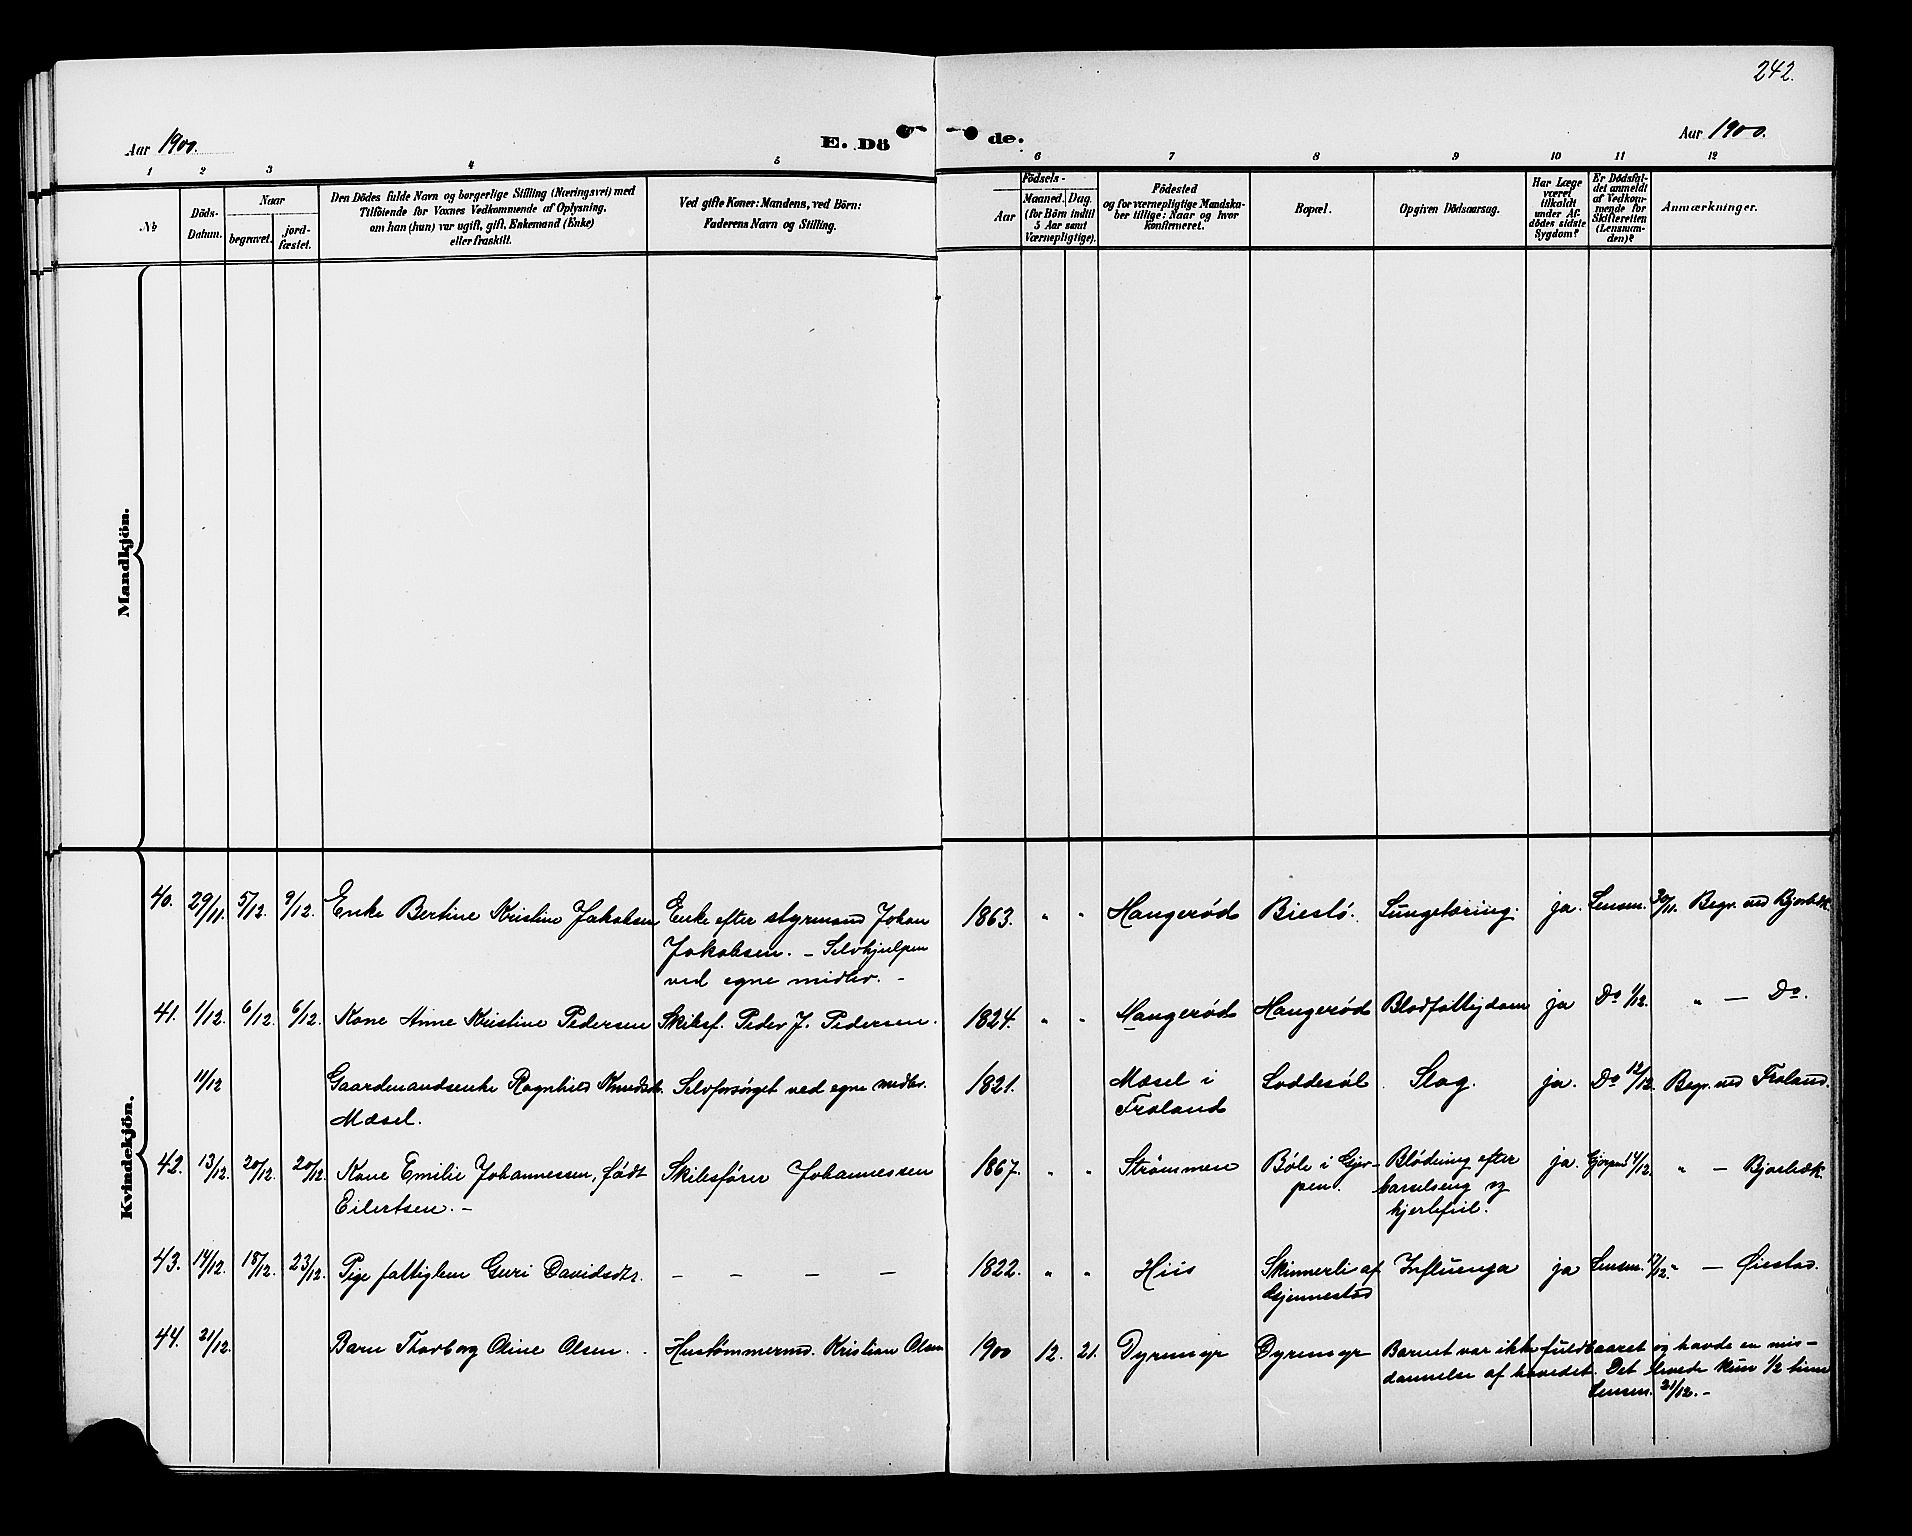 242.
Aar 1900.
E. Dö
de.
Aar 1900.
1 2 3 4 5 6 7 8 9 10 11 12
№
Döds-
Datum.
Naar
begravet.
jord-
fæstet.
Den Dödes fulde Navn og borgerlige Stilling (Næringsvei) med
Tilföiende for Voxnes Vedkommende af Oplysning,
om han (hun) var ugift, gift, Enkemand (Enke)
eller fraskilt.
Ved gifte Koner: Mandens, ved Börn:
Faderens Navn og Stilling.
Födsels-
Aar
Maaned. Dag.
(for Börn indtil
5 Aar samt
Værnepligtige).
Födested
og for værnepligtige Mandska-
ber tillige: Naar og hvor
konfirmeret.
Bopæl.
Opgiven Dödsaarsag.
Har Læge
været
tilkaldt
under Af-
dödes sidste
Sygdom?
Er Dödsfal-
det anmeldt
af Vedkom-
mende for
Skifteretten
(Lensman-
den)?
Anmærkninger.
Mandkjön.
Kvindekjön.
40. 29/11. 5/12. 9/12. Enke Bertine Kristine Jakobsen Enke efter styrmand Johan 1863. " " Hangerød Biestø. Lungetæring. ja. Lensm. 30/11. Begr. ved Bjorbæk.
Jakobsen. – Selvhjulpen
ved egne midler. –
41. 1/12. 6/12. 6/12. Kone Anne Kristine Pedersen Skibsf. Peder J. Pedersen. 1824. " " Mangerød Hangerød Blodfattigdom ja Do 1/12. " – Do.
11/12 Gaardmandsenke Ragnhild Knudsdt. Selvforsørget ved egne midler. 1821. Mæsel i Loddesøl. Slag. ja. Do 12/12. Begr. ved Froland.
Mæsel. Froland
42. 13/12. 20/12. 20/12. Kone Emilie Johannessen, født Skibsfører Johannessen 1867. " " Strömmen Bøle i Gjer- Blödning efter ja. Gjerpen 14/12. " – Bjorbæk.
Eilertsen. – pen. barselseng og
hjertefeil.
43. 14/12. 18/12. 23/12. Pige fattiglem Guri Davidsdtr. – – – – 1822. " " Hiis Skinnerli af Influenza ja Lensm. 17/12. " – Øiestad.
Gjennestad
44. 21/12. Barn Thorborg Oline Olsen. Hustømmermd. Kristian Olsen 1900 12. 21. Dyrmyr Dyrmyr Barnet var ikke fuldbaaret og havde en mis-
dannelse af hovedet. Det levede kun 1/2 time
Lensm. 21/12. –